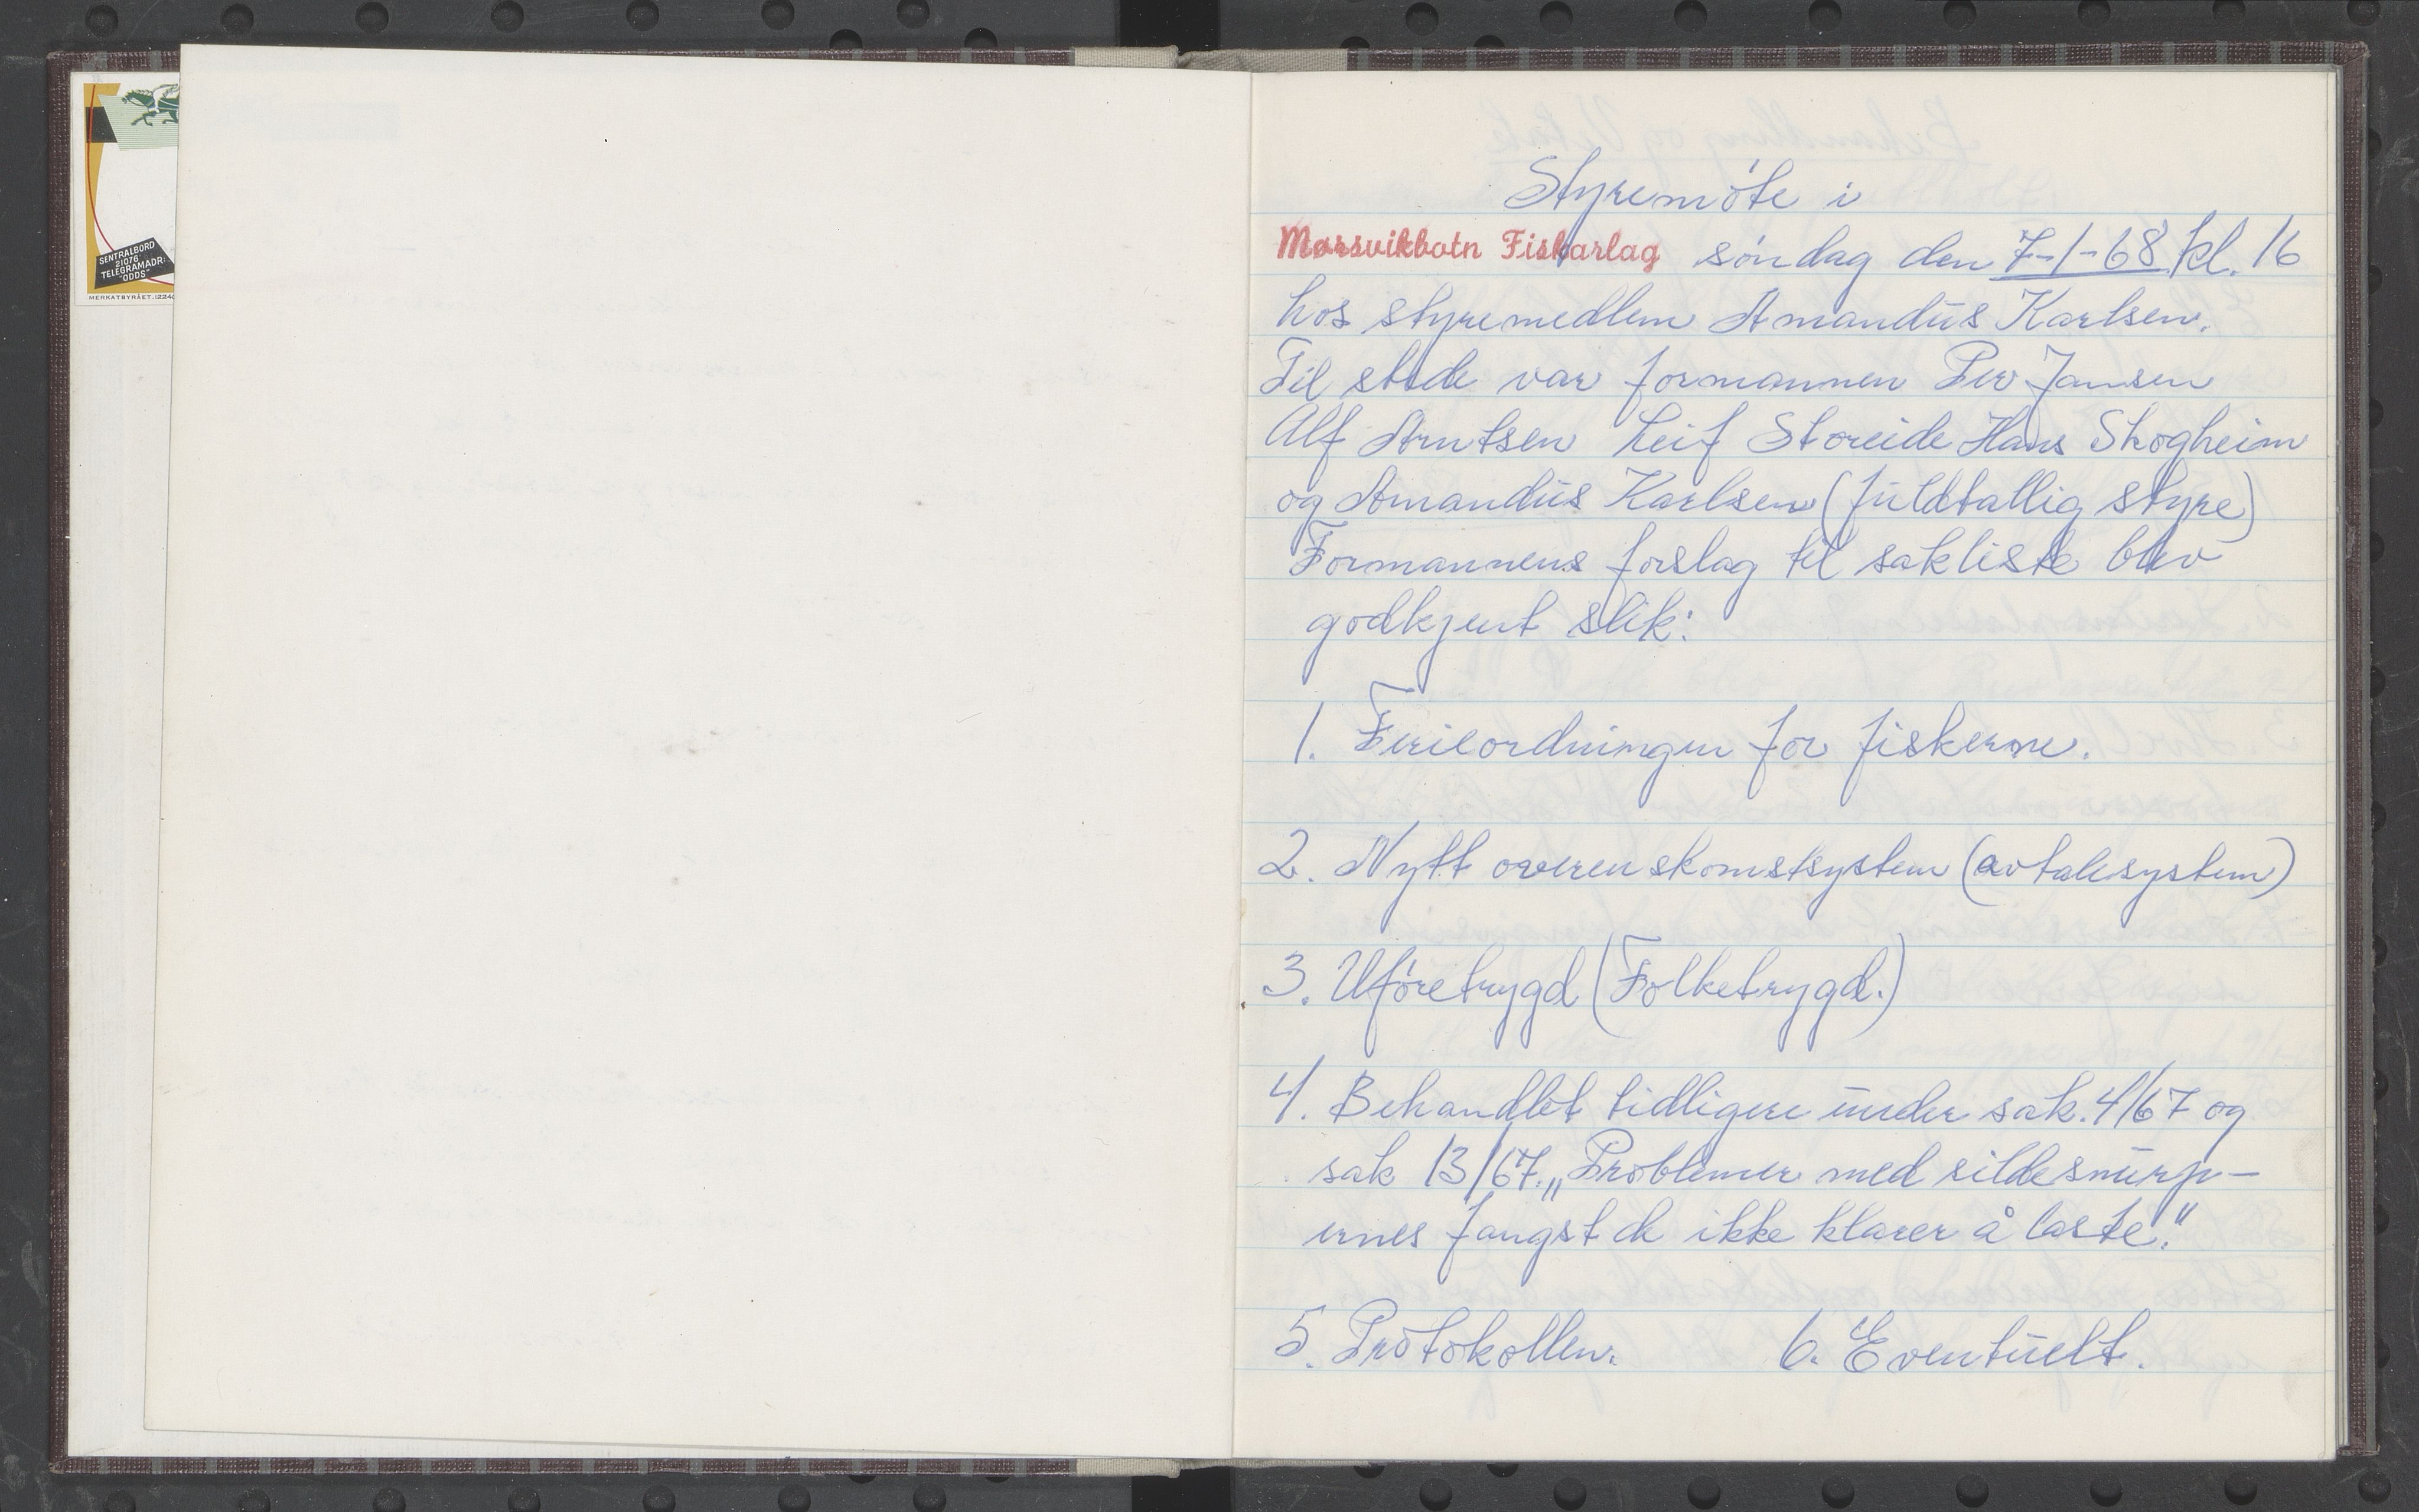 SENTRALBORD
21076
TELEGRAMADR:
"ODDS"
MERKATBYRÅET.
Styremóte i
Mørsvikbotn Fiskarlag søndag den 7-1-68 kl. 16
hos styremedlem Amandus Karlsen.
Til stede var formannen Per Jansen
Alf Arntsen Leif Storeide Hans Skogheim
og Amandus Karlsen (fuldtallig styre)
Formannens forslag til sakliste blev
godkjent slik:
1. Ferieordningen for fiskerne.
2. Nytt overenskomstsystem (avtalesystem)
3. Uføretrygd (Folketrygd.)
4. Behandlet tidligere under sak. 4/67 og
sak 13/67. „Problemer med sildesnurp-
ernes fangst de ikke klarer å laste."
5. Protokollen. 6. Eventuelt.